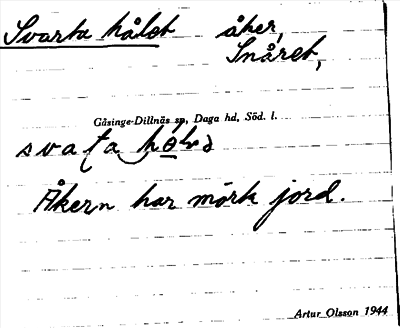 Svarta hålet åker,
Snåret,
Gåsinge-Dillnäs sn, Daga hd, Söd. l.
Åkern har mörk jord.
Artur Olsson 1944